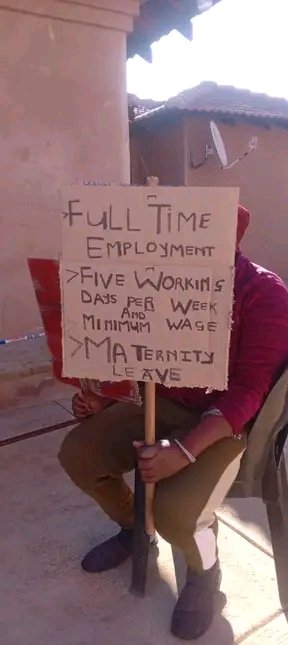 >FULL TIME
EMPLOYMENT
>FIVE WORKING
DAYS PER WEEK
AND
MINIMUM WAGE
>MATERNITY
LEAVE